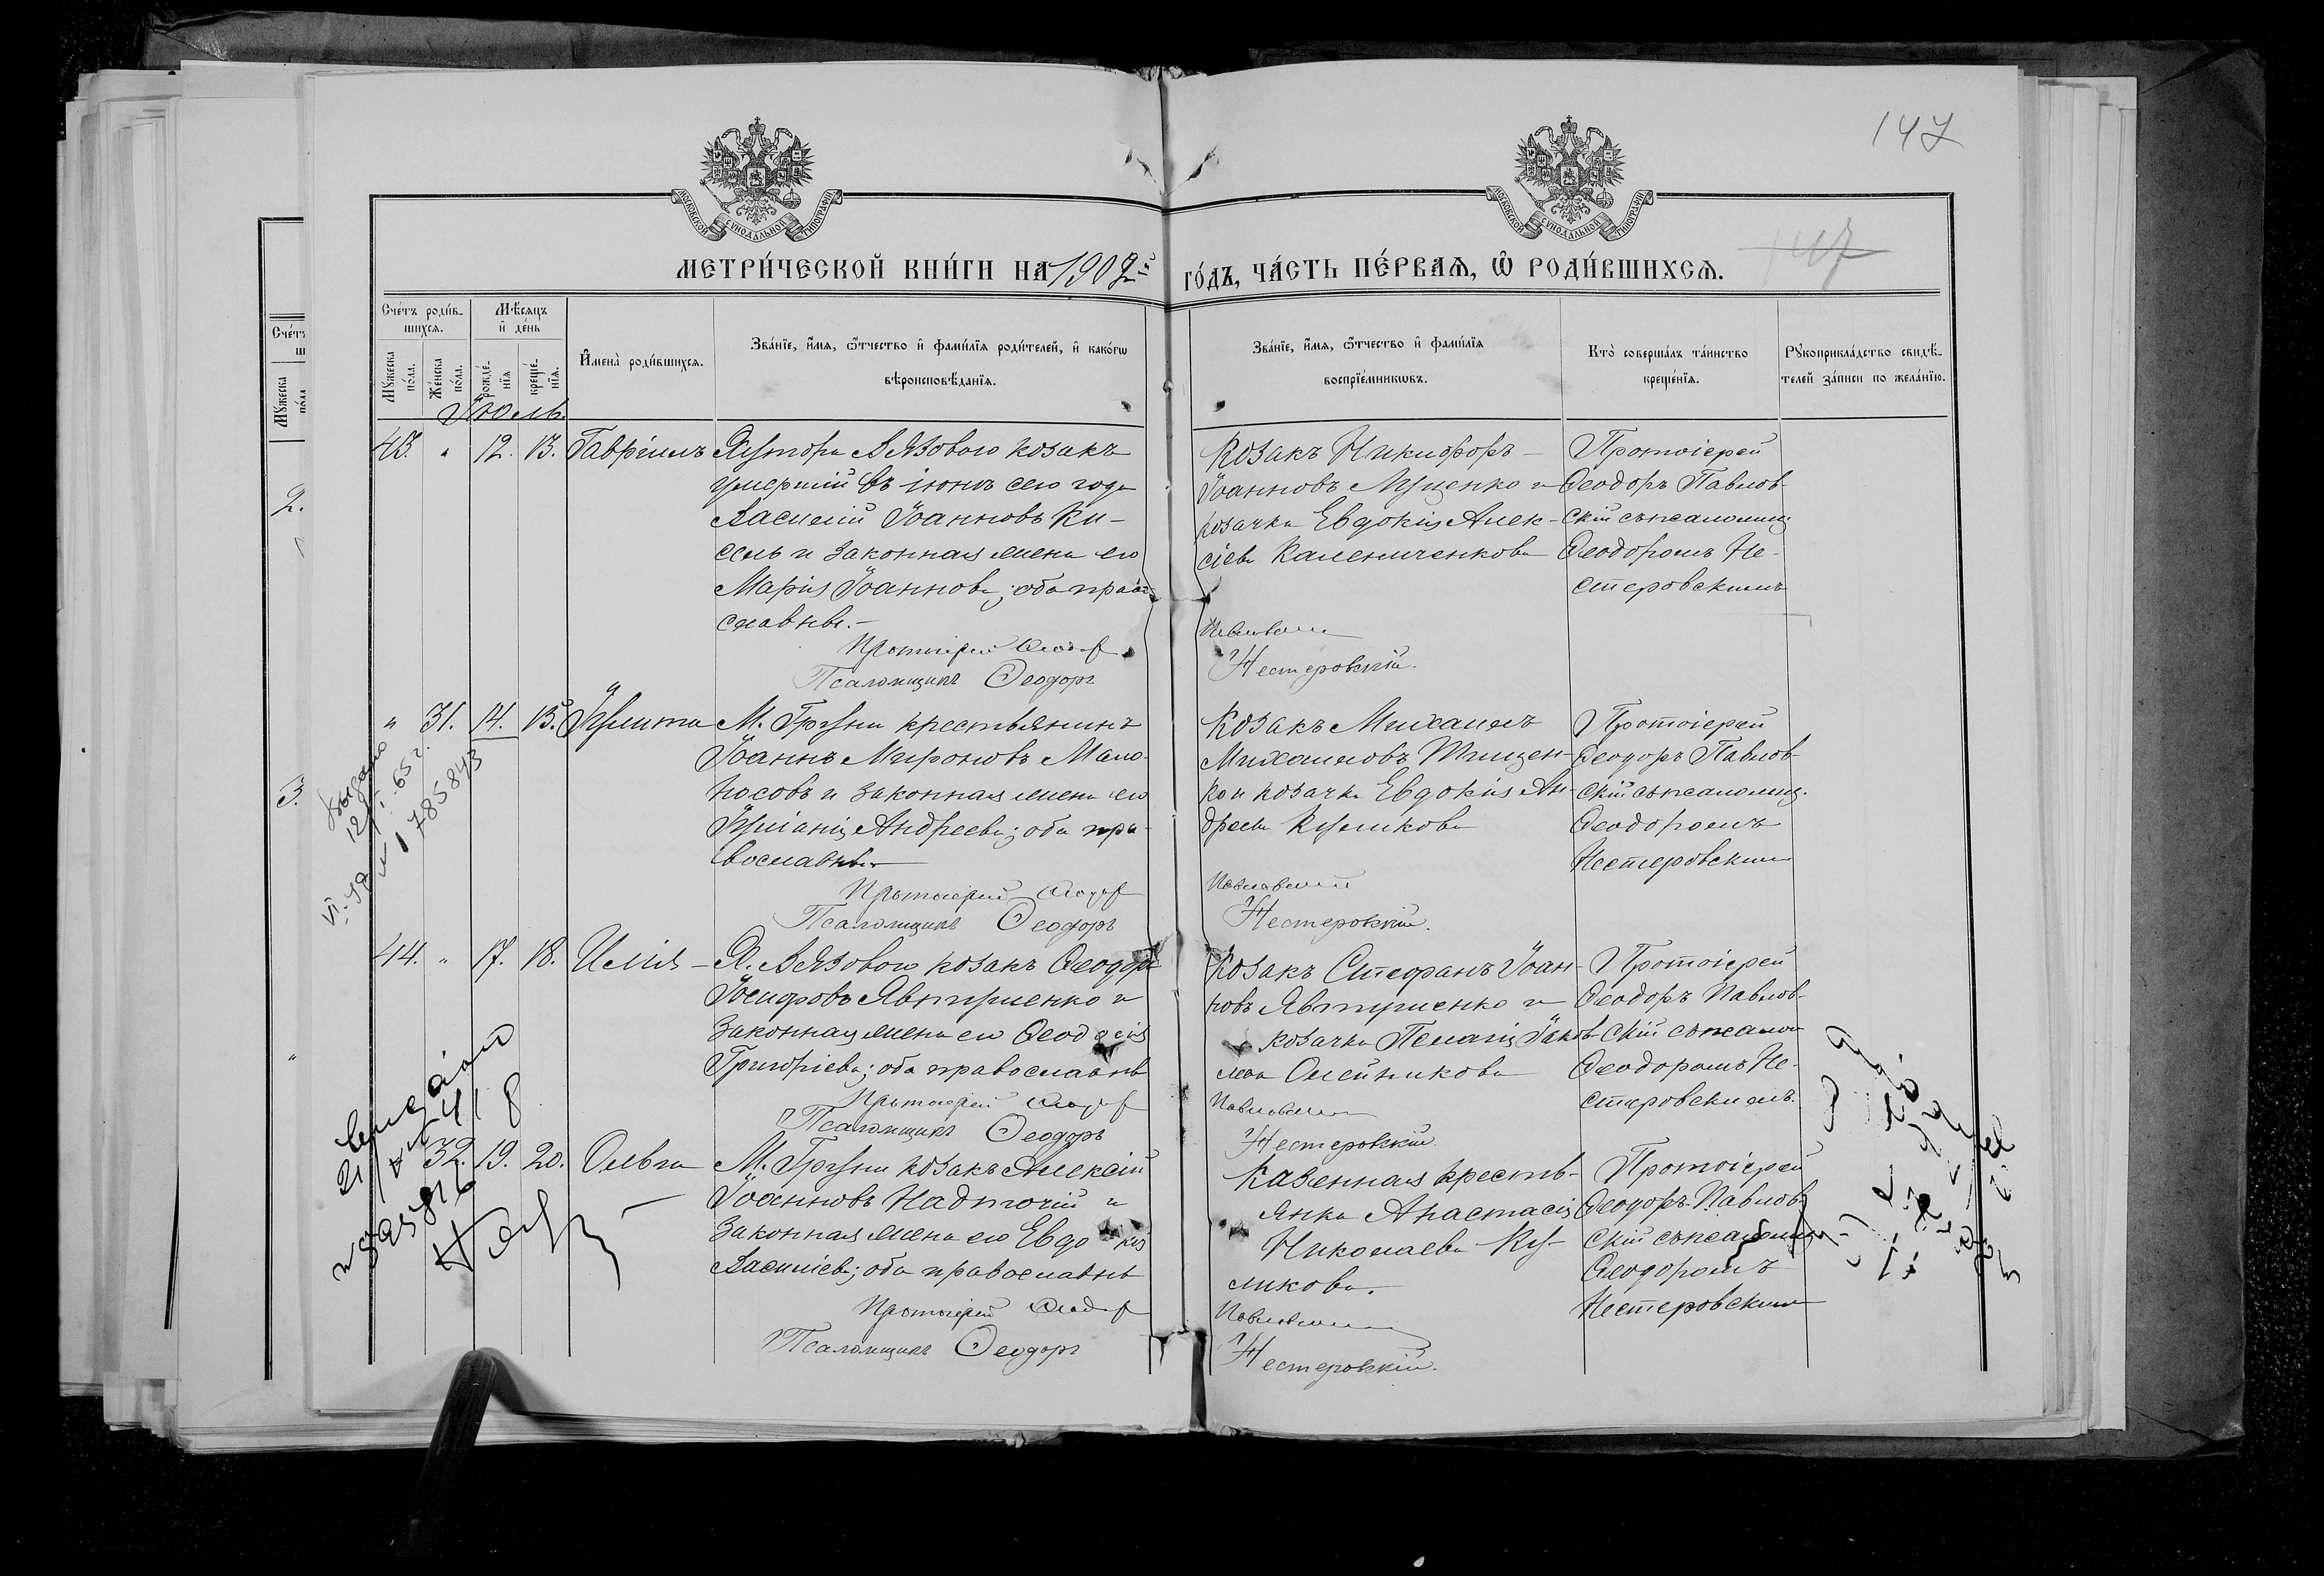 147
147
МОСКОВСКОЙ СУНОДАЛЬНОЙ ТИПОГРАФІИ
МОСКОВСКОЙ СУНОДАЛЬНОЙ ТИПОГРАФІИ
МЕТРИ́ЧЕСКОЙ КНИ́ГИ НА 1907й ГО́ДЪ, ЧА́СТЬ ПЕ́РВАѦ, Ѡ҆ РОДИ́ВШИХСѦ.
Сче́тъ роди́в-
шихсѧ.
Мѣ́сѧцъ
и҆ де́нь
Мꙋ́жеска по́ла.
Же́нска по́ла.
рожде́-нїѧ
креще́-нїѧ.
И҆мена̀ роди́вшихсѧ.
Зва́нїе, и҆́мѧ, ѻ҆́тчество и҆ фами́лїѧ роди́телей, и҆ како́гѡ
вѣроисповѣ́данїѧ.
Зва́нїе, и҆́мѧ, ѻ҆́тчество и҆ фами́лїѧ
воспрїе́мникѡвъ.
Кто̀ соверша́лъ та́инство
креще́нїѧ.
Рꙋкоприкла́дство свидѣ́-
телей за́писи по жела́нїю.
Іюль.
43. " 12. 13. Гавріилъ
Хутора Вязоваго козакъ
умершій въ іюнѣ сего года
Василій Іоанновъ Ки-
сель и законная жена его
Марія Іоаннова; оба право-
славные.-
Протоіерей Ѳеодоръ
Псаломщикъ Ѳеодоръ
Козакъ Никифоръ
Іоанновъ Мущенко и
козачка Евдокія Алек-
сіева Калениченкова
Павловскій
Нестеровскій.
Протоіерей
Ѳеодоръ Павлов-
скій съ псаломщ.
Ѳеодоромъ Не-
стеровскимъ
" 31. 14. 15. Іулитта
М. Груни крестьянинъ
Іоаннъ Мироновъ Мало-
носовъ и законная жена его
Іуліанія Андреева; оба пра-
вославные.
Протоіерей Ѳеодоръ
Псаломщикъ Ѳеодоръ
Козакъ Михаилъ
Михаиловъ Тищен-
ко и козачка Евдокія Ан-
дреева Куликова
Павловскій
Нестеровскій.
Протоіерей
Ѳеодоръ Павлов-
скій съ псаломщ.
Ѳеодоромъ
Нестеровскимъ
Выдано
785843
44. " 17. 18. Илія
Х. Вязоваго козакъ Ѳеодоръ
Іосифовъ Явтушенко и
законная жена его Ѳеодосія
Григоріева; оба православные
Протоіерей Ѳеодоръ
Псаломщикъ Ѳеодоръ
Козакъ Стефанъ Іоан-
новъ Явтушенко и
козачка Пелагія Іаков-
лева Олейникова
Павловскій
Нестеровскій
Протоіерей
Ѳеодоръ Павлов-
скій съ псалом
Ѳеодоромъ Не-
стеровскимъ.
32. 19. 20. Ольга
М. Груни козакъ Алексій
Іоанновъ Надточій и
законная жена его Евдокія
Василіева; оба православные
Протоіерей Ѳеодоръ
Псаломщикъ Ѳеодоръ
Казенная кресть-
янка Анастасія
Николаева Ку-
ликова.
Павловскій
Нестеровскій.
Протоіерей
Ѳеодоръ Павлов-
скій съ псаломщ
Ѳеодоромъ
Нестеровскимъ
Сче́тъ
Мꙋ́жеска по́ла
2.
3.
"